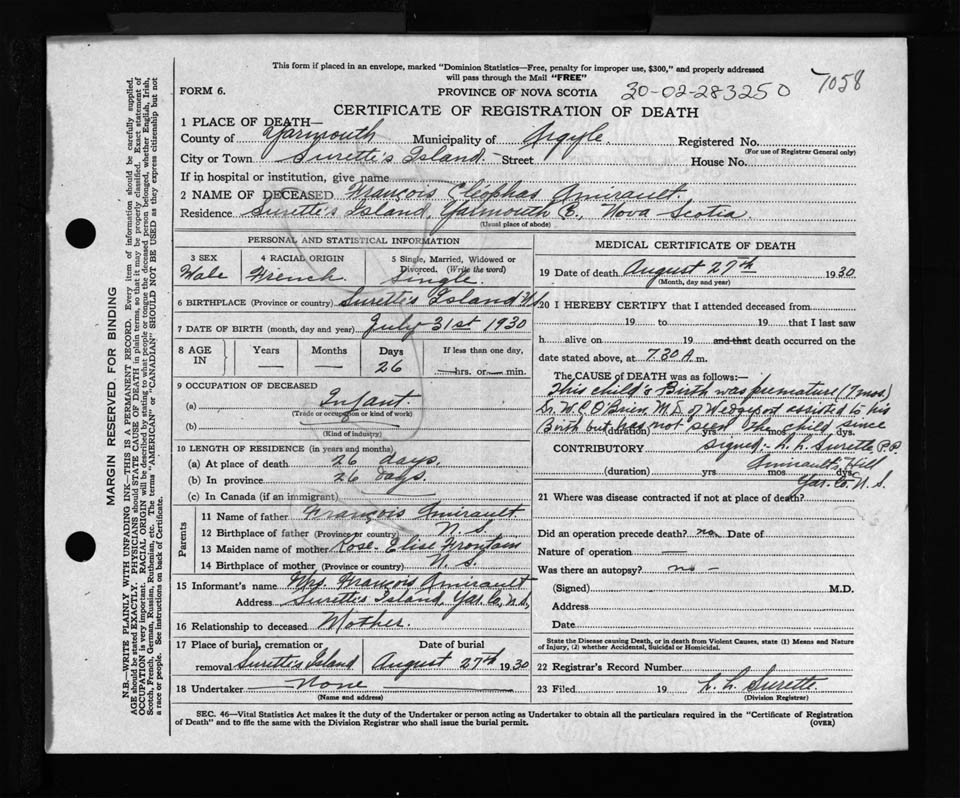 This form if placed in an envelope, marked "Dominion Statistics—Free, penalty for improper use, $300," and properly addressed
will pass through the Mail "FREE"
7058
FORM 6.
PROVINCE OF NOVA SCOTIA
30-02-283250
CERTIFICATE OF REGISTRATION OF DEATH
1 PLACE OF DEATH—
County of Yarmouth Municipality of Argyle Registered No.
(For use of Registrar General only)
City or Town Surette's Island. Street House No.
If in hospital or institution, give name
2 NAME OF DECEASED François Cliophas Amirault.
Residence Surette's Island, Yarmouth Co., Nova Scotia
(Usual place of abode)
PERSONAL AND STATISTICAL INFORMATION
3 SEX 4 RACIAL ORIGIN 5 Single, Married, Widowed or
Divorced. (Write the word)
Male French Single.
6 BIRTHPLACE (Province or country) Surette's Island N.S.
7 DATE OF BIRTH (month, day and year) July 31st 1930
8 AGE IN Years Months Days If less than one day,
— — 26 hrs. or min.
9 OCCUPATION OF DECEASED
(a) Infant
(Trade or occupation or kind of work)
(b)
(Kind of industry)
10 LENGTH OF RESIDENCE (in years and months)
(a) At place of death 26 days.
(b) In province 26 days.
(c) In Canada (if an immigrant)
Parents
11 Name of father François Amirault.
12 Birthplace of father (Province or country) N.S.
13 Maiden name of mother Rose-Elise Frontain
14 Birthplace of mother (Province or country) N.S.
15 Informant's name Mrs. François Amirault
Address Surette's Island, Yar. Co., N.S.
16 Relationship to deceased Mother.
17 Place of burial, cremation or Date of burial
removal Surette's Island August 27th 1930
18 Undertaker None
(Name and address)
MEDICAL CERTIFICATE OF DEATH
19 Date of death August 27th 1930
(Month, day and year)
20 I HEREBY CERTIFY that I attended deceased from
19 to 19 that I last saw
h alive on 19 and that death occurred on the
date stated above, at 7.30 A.m.
The CAUSE of DEATH was as follows:—
This child's Birth was premature (7 mos)
Dr. W. C. O'Brien M.D. of Wedgeport assisted to his
Birth but has not seen the child since
(duration) yrs mos dys.
Signed - L. L. Surette, P.O.
CONTRIBUTORY
Amirault's Hill
(duration) yrs mos dys.
Yar. Co. N.S.
21 Where was disease contracted if not at place of death?
Did an operation precede death? no. Date of
Nature of operation —
Was there an autopsy? no -
(Signed) M.D.
Address
Date
State the Disease causing Death, or in death from Violent Causes, state (1) Means and Nature
of Injury, (2) whether Accidental, Suicidal or Homicidal.
22 Registrar's Record Number
23 Filed 19 L. L. Surette.
(Division Registrar)
SEC. 46—Vital Statistics Act makes it the duty of the Undertaker or person acting as Undertaker to obtain all the particulars required in the "Certificate of Registration
of Death" and to file the same with the Division Registrar who shall issue the burial permit.
(OVER)
MARGIN RESERVED FOR BINDING
N.B.—WRITE PLAINLY WITH UNFADING INK—THIS IS A PERMANENT RECORD. Every item of information should be carefully supplied.
AGE should be stated EXACTLY. PHYSICIANS should STATE CAUSE OF DEATH in plain terms, so that it may be properly classified. Exact statement of
OCCUPATION is very important. RACIAL ORIGIN will be described by stating to what people or tongue the deceased person belonged, whether English, Irish,
Scotch, French, German, Russian, Ruthenian, etc. The terms "AMERICAN" or "CANADIAN" SHOULD NOT BE USED as they express citizenship but not
a race or people. See instructions on back of Certificate.